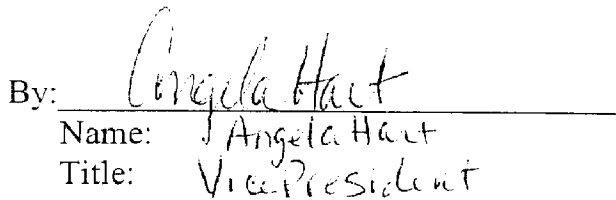 By: Angela Hart
Name: Angela Hart
Title: Vice President